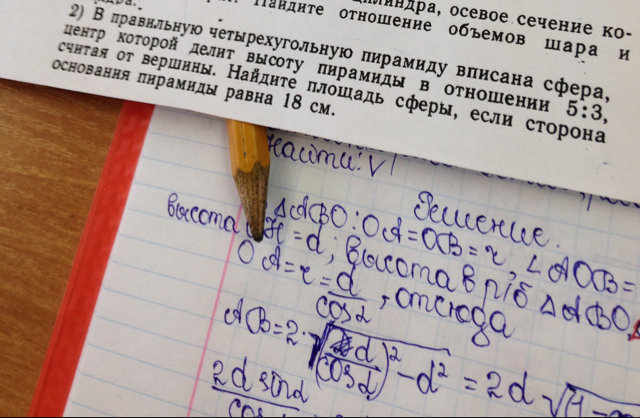 осевое сечение ко-
Найдите отношение объемов шара и
2) В правильную четырехугольную пирамиду вписана сфера,
центр которой делит высоту пирамиды в отношении 5:3,
считая от вершины. Найдите площадь сферы, если сторона
основания пирамиды равна 18 см.
найти: V
Решение.
ΔABO: OA=OB=r, ∠AOB=
высота OH=d; высота в р/б ΔABO,
OA=r=d/cosα, отсюда
AB=2·√((d/cosα)²-d²)=2d√
2d sinα